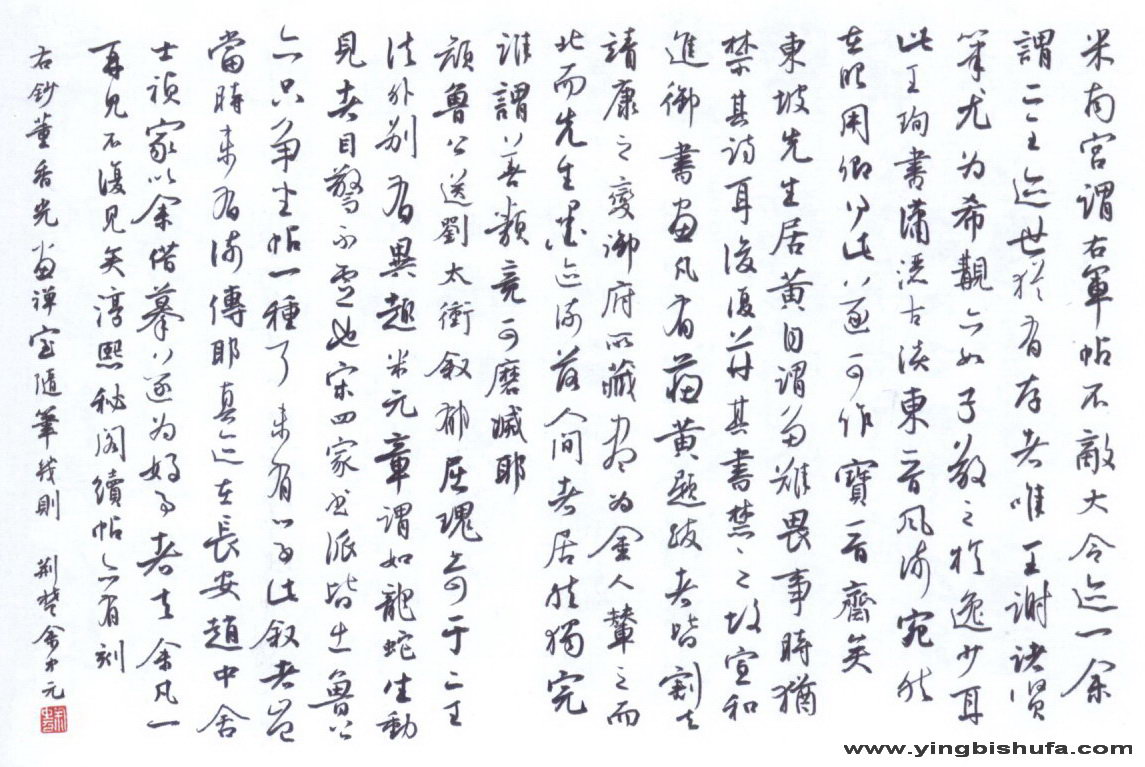 米南宮謂右軍帖不敵大令迹一余
謂二王迹世猶有存者唯王謝諸賢
筆尤为希覯亦如子敬之於逸少耳
此王珣書瀟洒古淡東晉風流宛然
在眼用卿得此以可作寶晉齋矣
東坡先生居黄自謂多難畏事時猶
禁其詩耳後復并其書禁之故宣和
進御書畫凡有蘇黄題跋者皆割去
靖康之變御府所藏盡为金人輦之而
北而先生墨迹流落人間者居然獨完
誰謂善類竟可磨滅耶
顔魯公送劉太衝叙郁屈瑰奇于二王
法外别有異趣米元章謂如龍蛇生動
見者目驚不虚也宋四家書派皆出魯公
亦只争坐帖一種耳未有以学此叙者豈
當時未有流傳耶真迹在長安趙中舍
士禎家以余借摹以遂为好事者去余凡一
再見不復見矣淳熙秘閣續帖亦有刻
右鈔董香光畫禪室隨筆幾則 荆楚余中元
www.yingbishufa.com